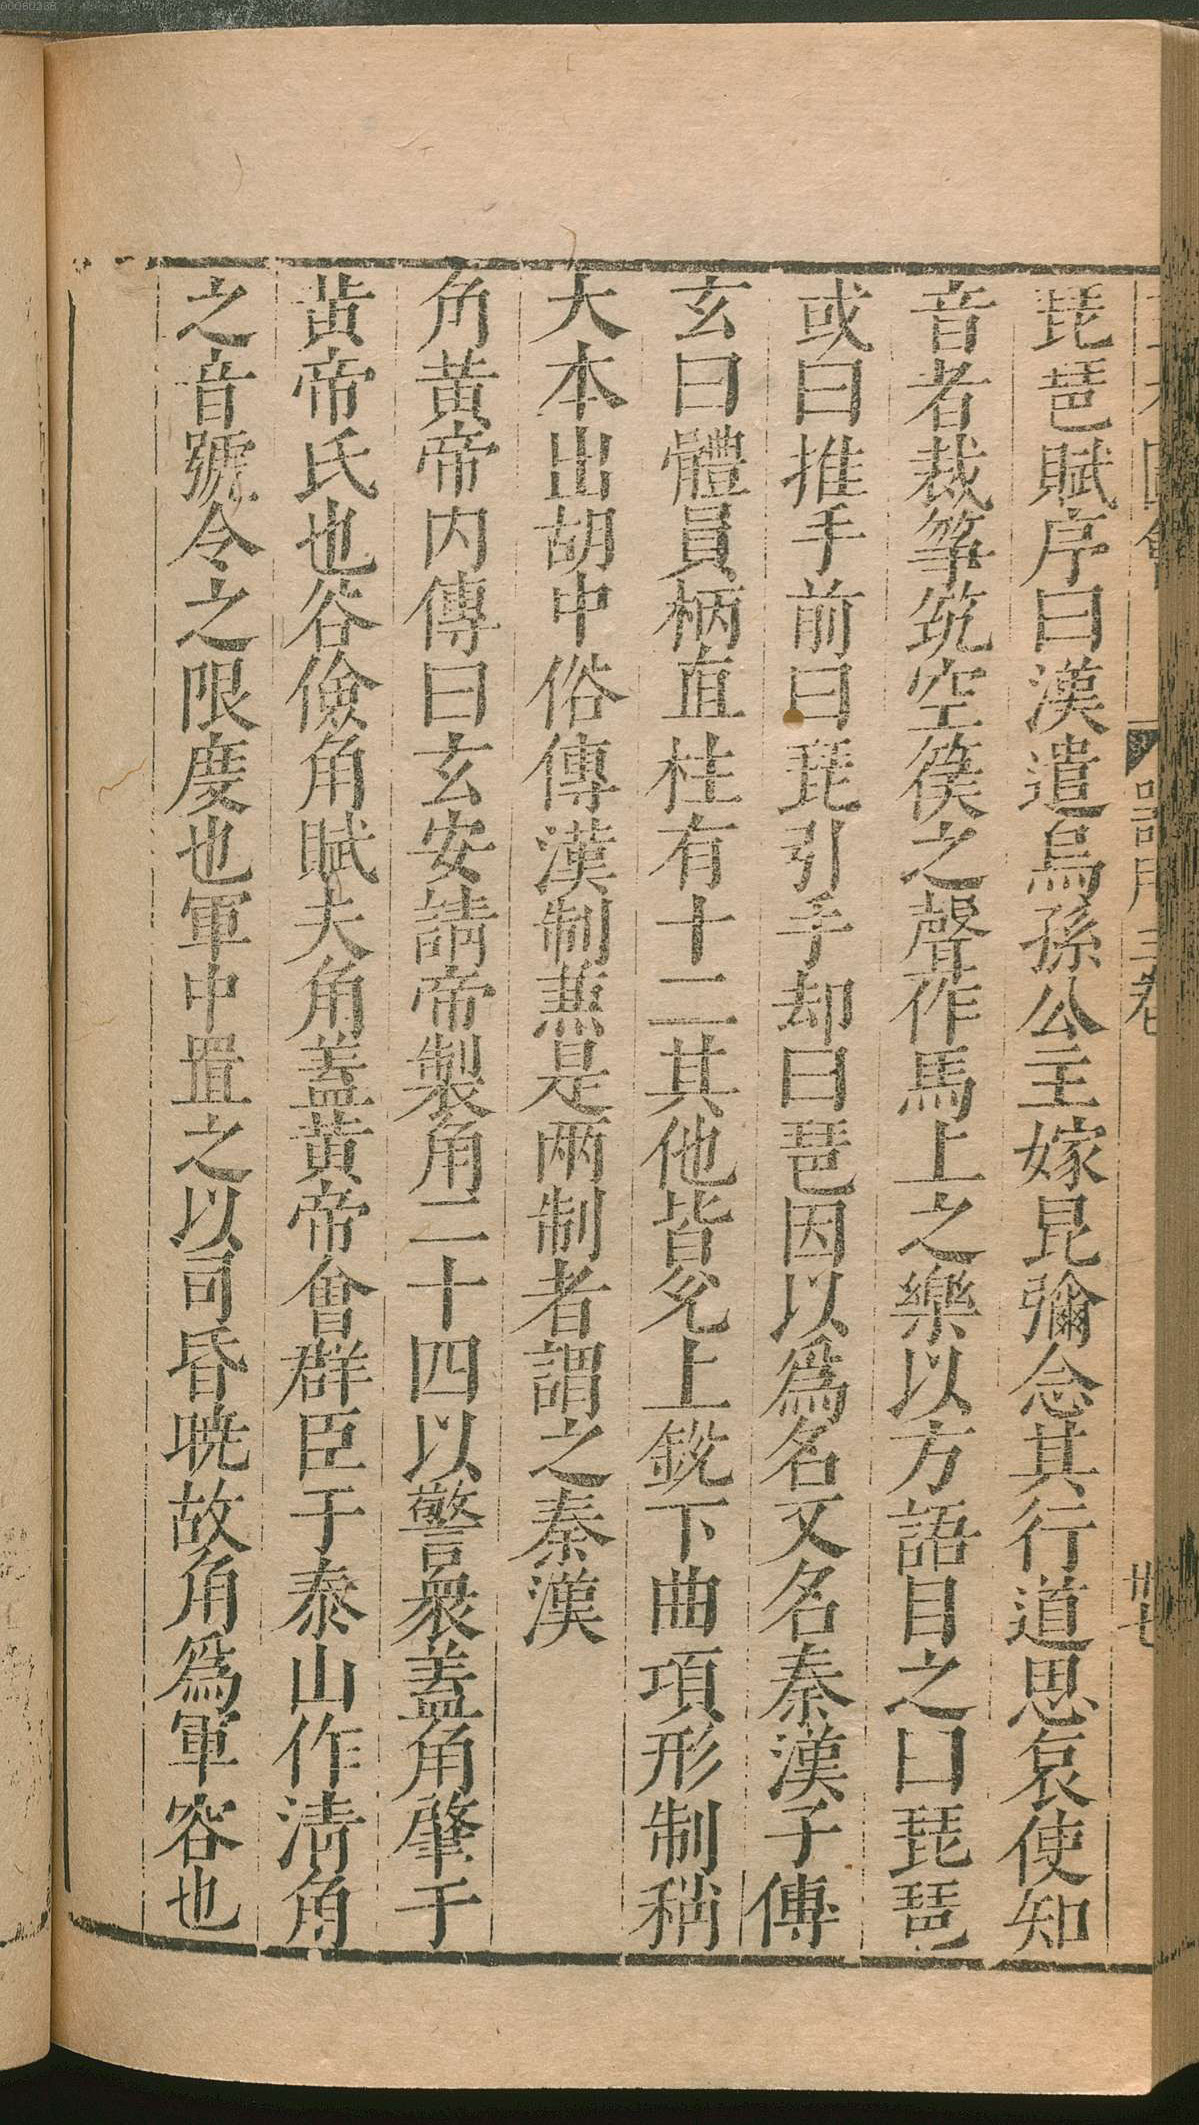 琵琶賦序曰漢遣烏孫公主嫁昆彌念其行道思哀使知
音者裁筝筑空篌之聲作馬上之樂以方語目之曰琵琶
或曰推手前曰琵引手却曰琶因以爲名又名秦漢子傳
玄曰體員柄直柱有十二其他皆兊上銳下曲項形制稍
大本出胡中俗傳漢制蕪是兩制者謂之秦漢
角黃帝内傳曰玄安請帝製角二十四以警衆蓋角肇于
黃帝氏也谷儉角賦夫角蓋黃帝會群臣于泰山作清角
之音號令之限度也軍中置之以司昏曉故角爲軍容也
器用三卷
廿七
00060286